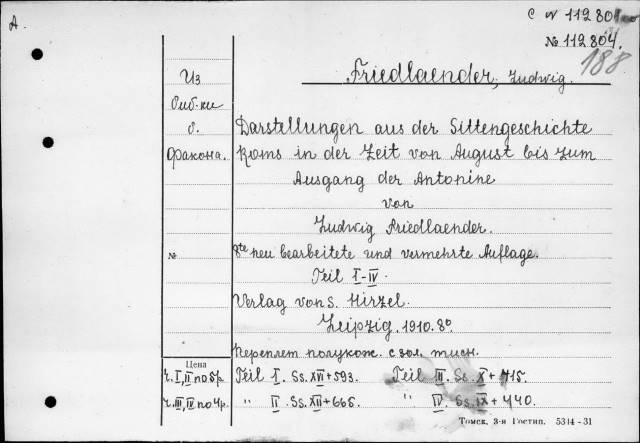 А.
С № 112801
№ 112804.
188
Friedlaender, Ludwig.
Из
библ-ки
о.
Факона.
Darstellungen aus der Sittengeschichte
Roms in der Zeit von August bis zum
Ausgang der Antonine
von
Ludwig Friedlaender.
№
8te neu bearbeitete und vermehrte Auflage.
Teil I-IV.
Verlag von S. Hirzel.
Leipzig. 1910. 8º
Переплет полукож. с зол. тисн.
Цена
Ч. I, II по 5р. Teil I. Ss. XVI + 593. Teil III. Ss. X + 415.
Ч. III, IV по 4р. " II. Ss. XII + 665. " IV. Ss. IX + 440.
Томск. 3-я Гостип. 5314-31